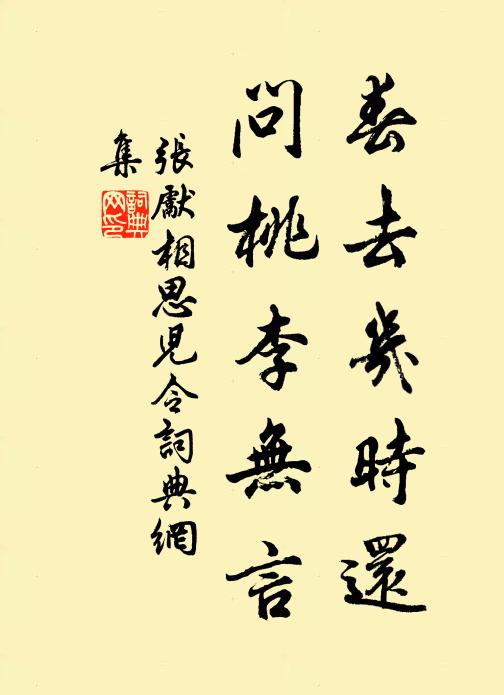 春去幾時還
問桃李無言
張獻相思兒令詞典網
集
詞典
网印